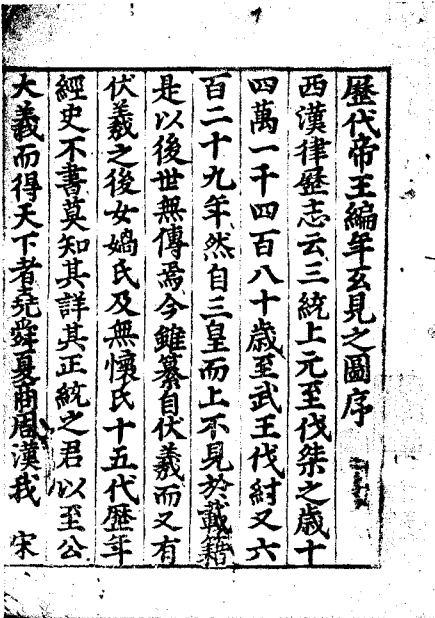 歷代帝王編年互見之圖序
西漢律歷志云三統上元至伐桀之歲十
四萬一千四百八十歲至武王伐紂又六
百二十九年然自三皇而上不見於載籍
是以後世無傳焉今雖纂自伏羲而又有
伏羲之後女媧氏及無懷氏十五代歷年
經史不書莫知其詳其正統之君以至公
大義而得天下者堯舜夏商周漢我 宋